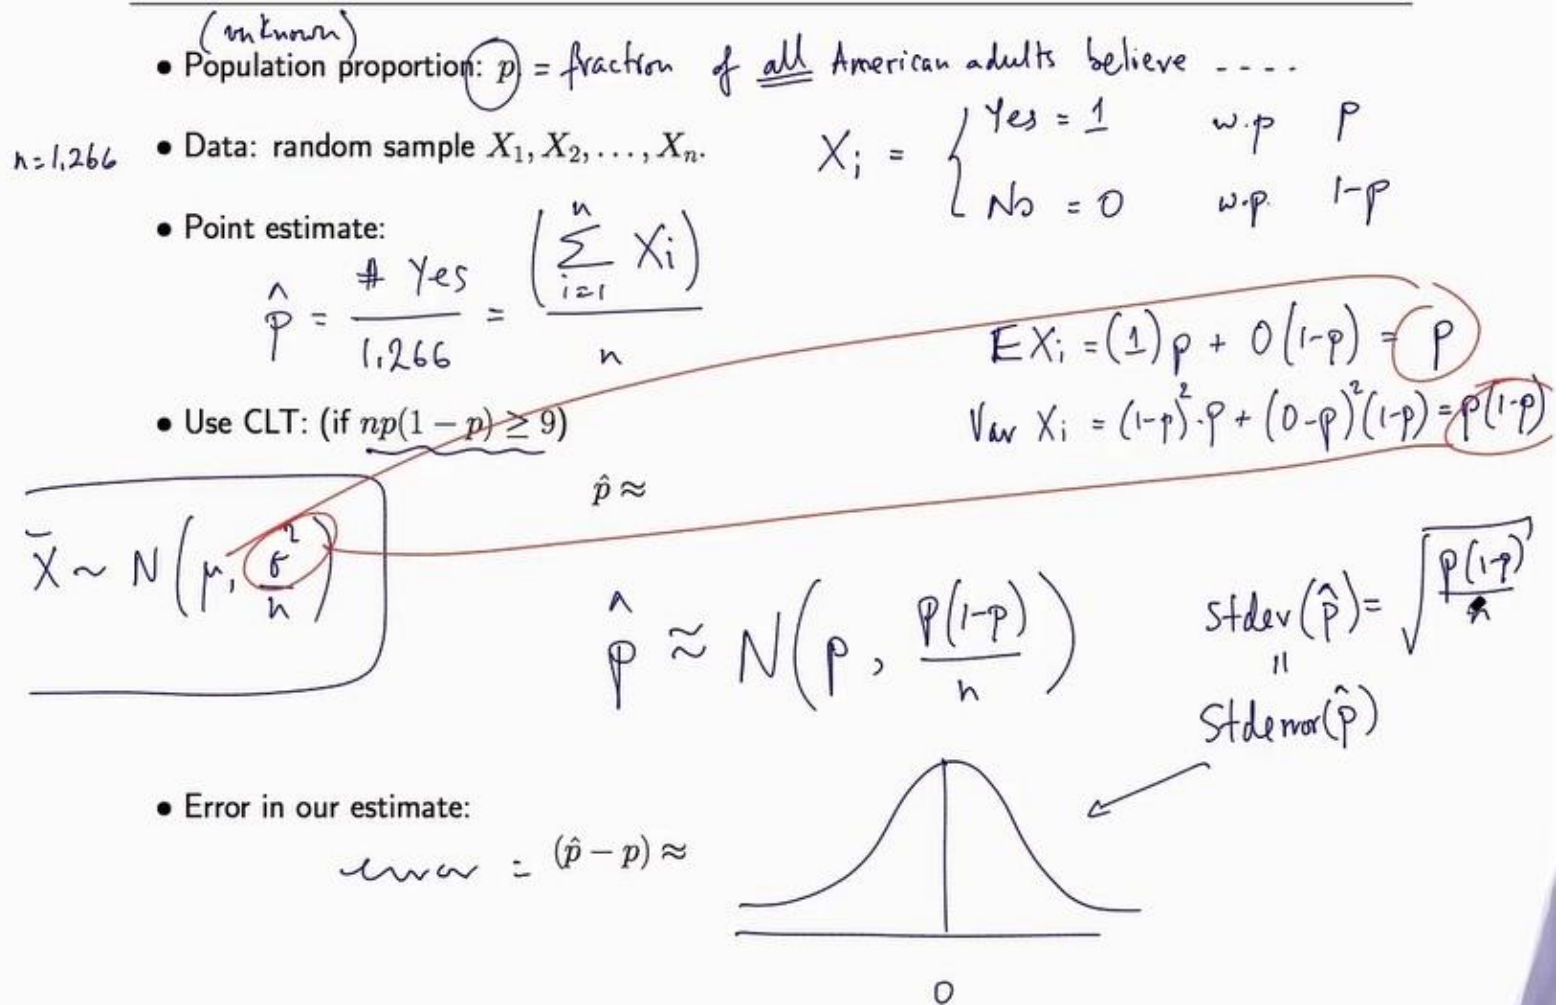 (unknown)
• Population proportion: p = fraction of all American adults believe ----
n=1,266 • Data: random sample X₁, X₂, . . . , Xₙ.
Xᵢ = { Yes = 1 w.p p
No = 0 w.p. 1-p
• Point estimate:
p̂ = # Yes / 1,266 = (∑ᵢ₌₁ⁿ Xi) / n
E Xᵢ = (1)p + 0(1-p) = p
• Use CLT: (if np(1 − p) ≥ 9)
Var Xᵢ = (1-p)²·p + (0-p)²(1-p) = p(1-p)
p̂ ≈
X̄ ~ N(μ, σ²/n)
p̂ ≈ N(p, p(1-p)/n)
stdev(p̂) = √(p(1-p)/n)
=
Stderror(p̂)
• Error in our estimate:
error = (p̂ − p) ≈
0